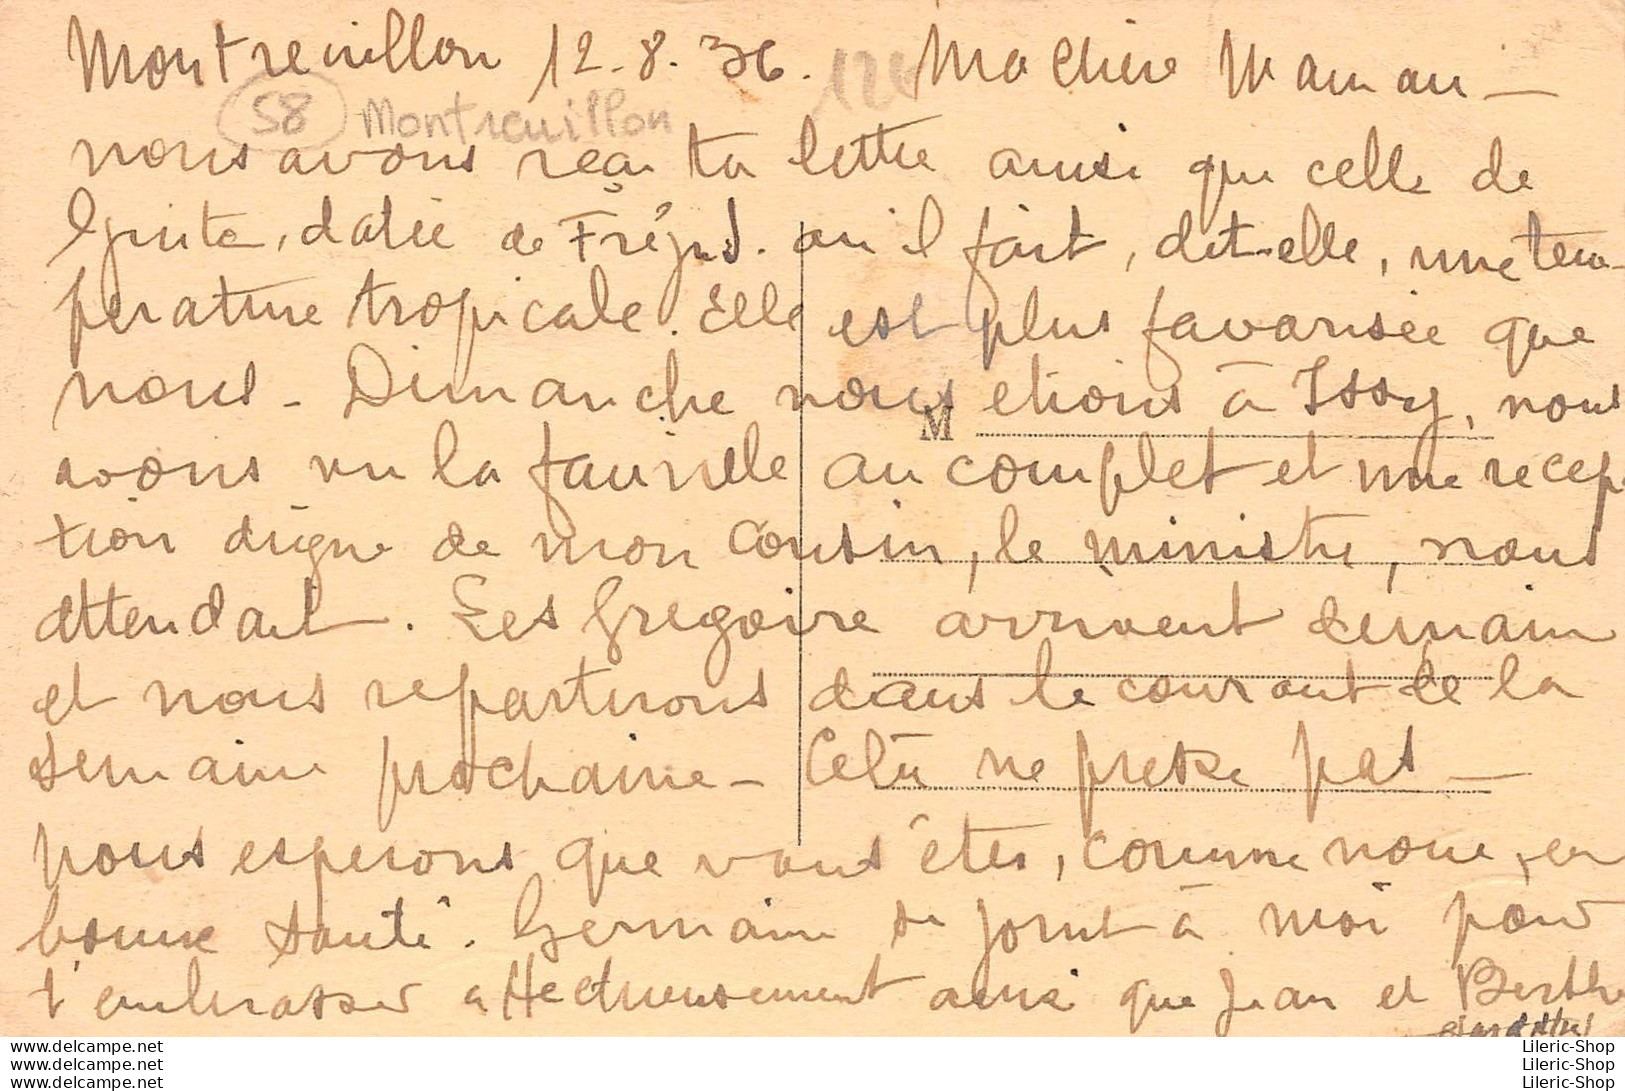 Montreuillon 12.8.36. Ma Chère Maman —
58 Montreuillon
nous avons reçu ta lettre ainsi que celle de
datée de Fréjus. où il fait, dit-elle, une tem-
perature tropicale. Elle est plus favorisée que
nous - Dimanche nous etions à Issy, nous
M
avons vu la famille au complet et une recep-
tion digne de mon Cousin, le ministre, nous
attendait. Les Gregoire arrivent demain
et nous repartirons dans le courant de la
semaine prochaine - Celà ne presse pas —
nous esperons que vous êtes, comme nous, en
bonne santé. Germaine se joint à moi pour
t'embrasser affectueusement ainsi que Jean et Berthe
www.delcampe.net
www.delcampe.net
www.delcampe.net
Lileric-Shop
Lileric-Shop
Lileric-Shop